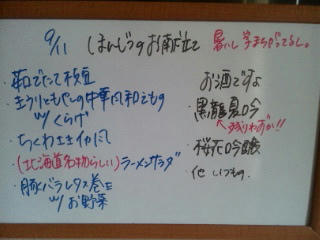 9/11 ほんじつのお献立て
暑いし
茹でたて枝豆
きゅうりともやしの中華風和えもの
w/ くらげ
ちくわ 風
(北海道名物らしい) ラーメンサラダ
豚バラレタス巻き
w/ お野菜
お酒ですよ
黒龍 夏吟
残りわずか!!
桜花吟醸
他 いつもの